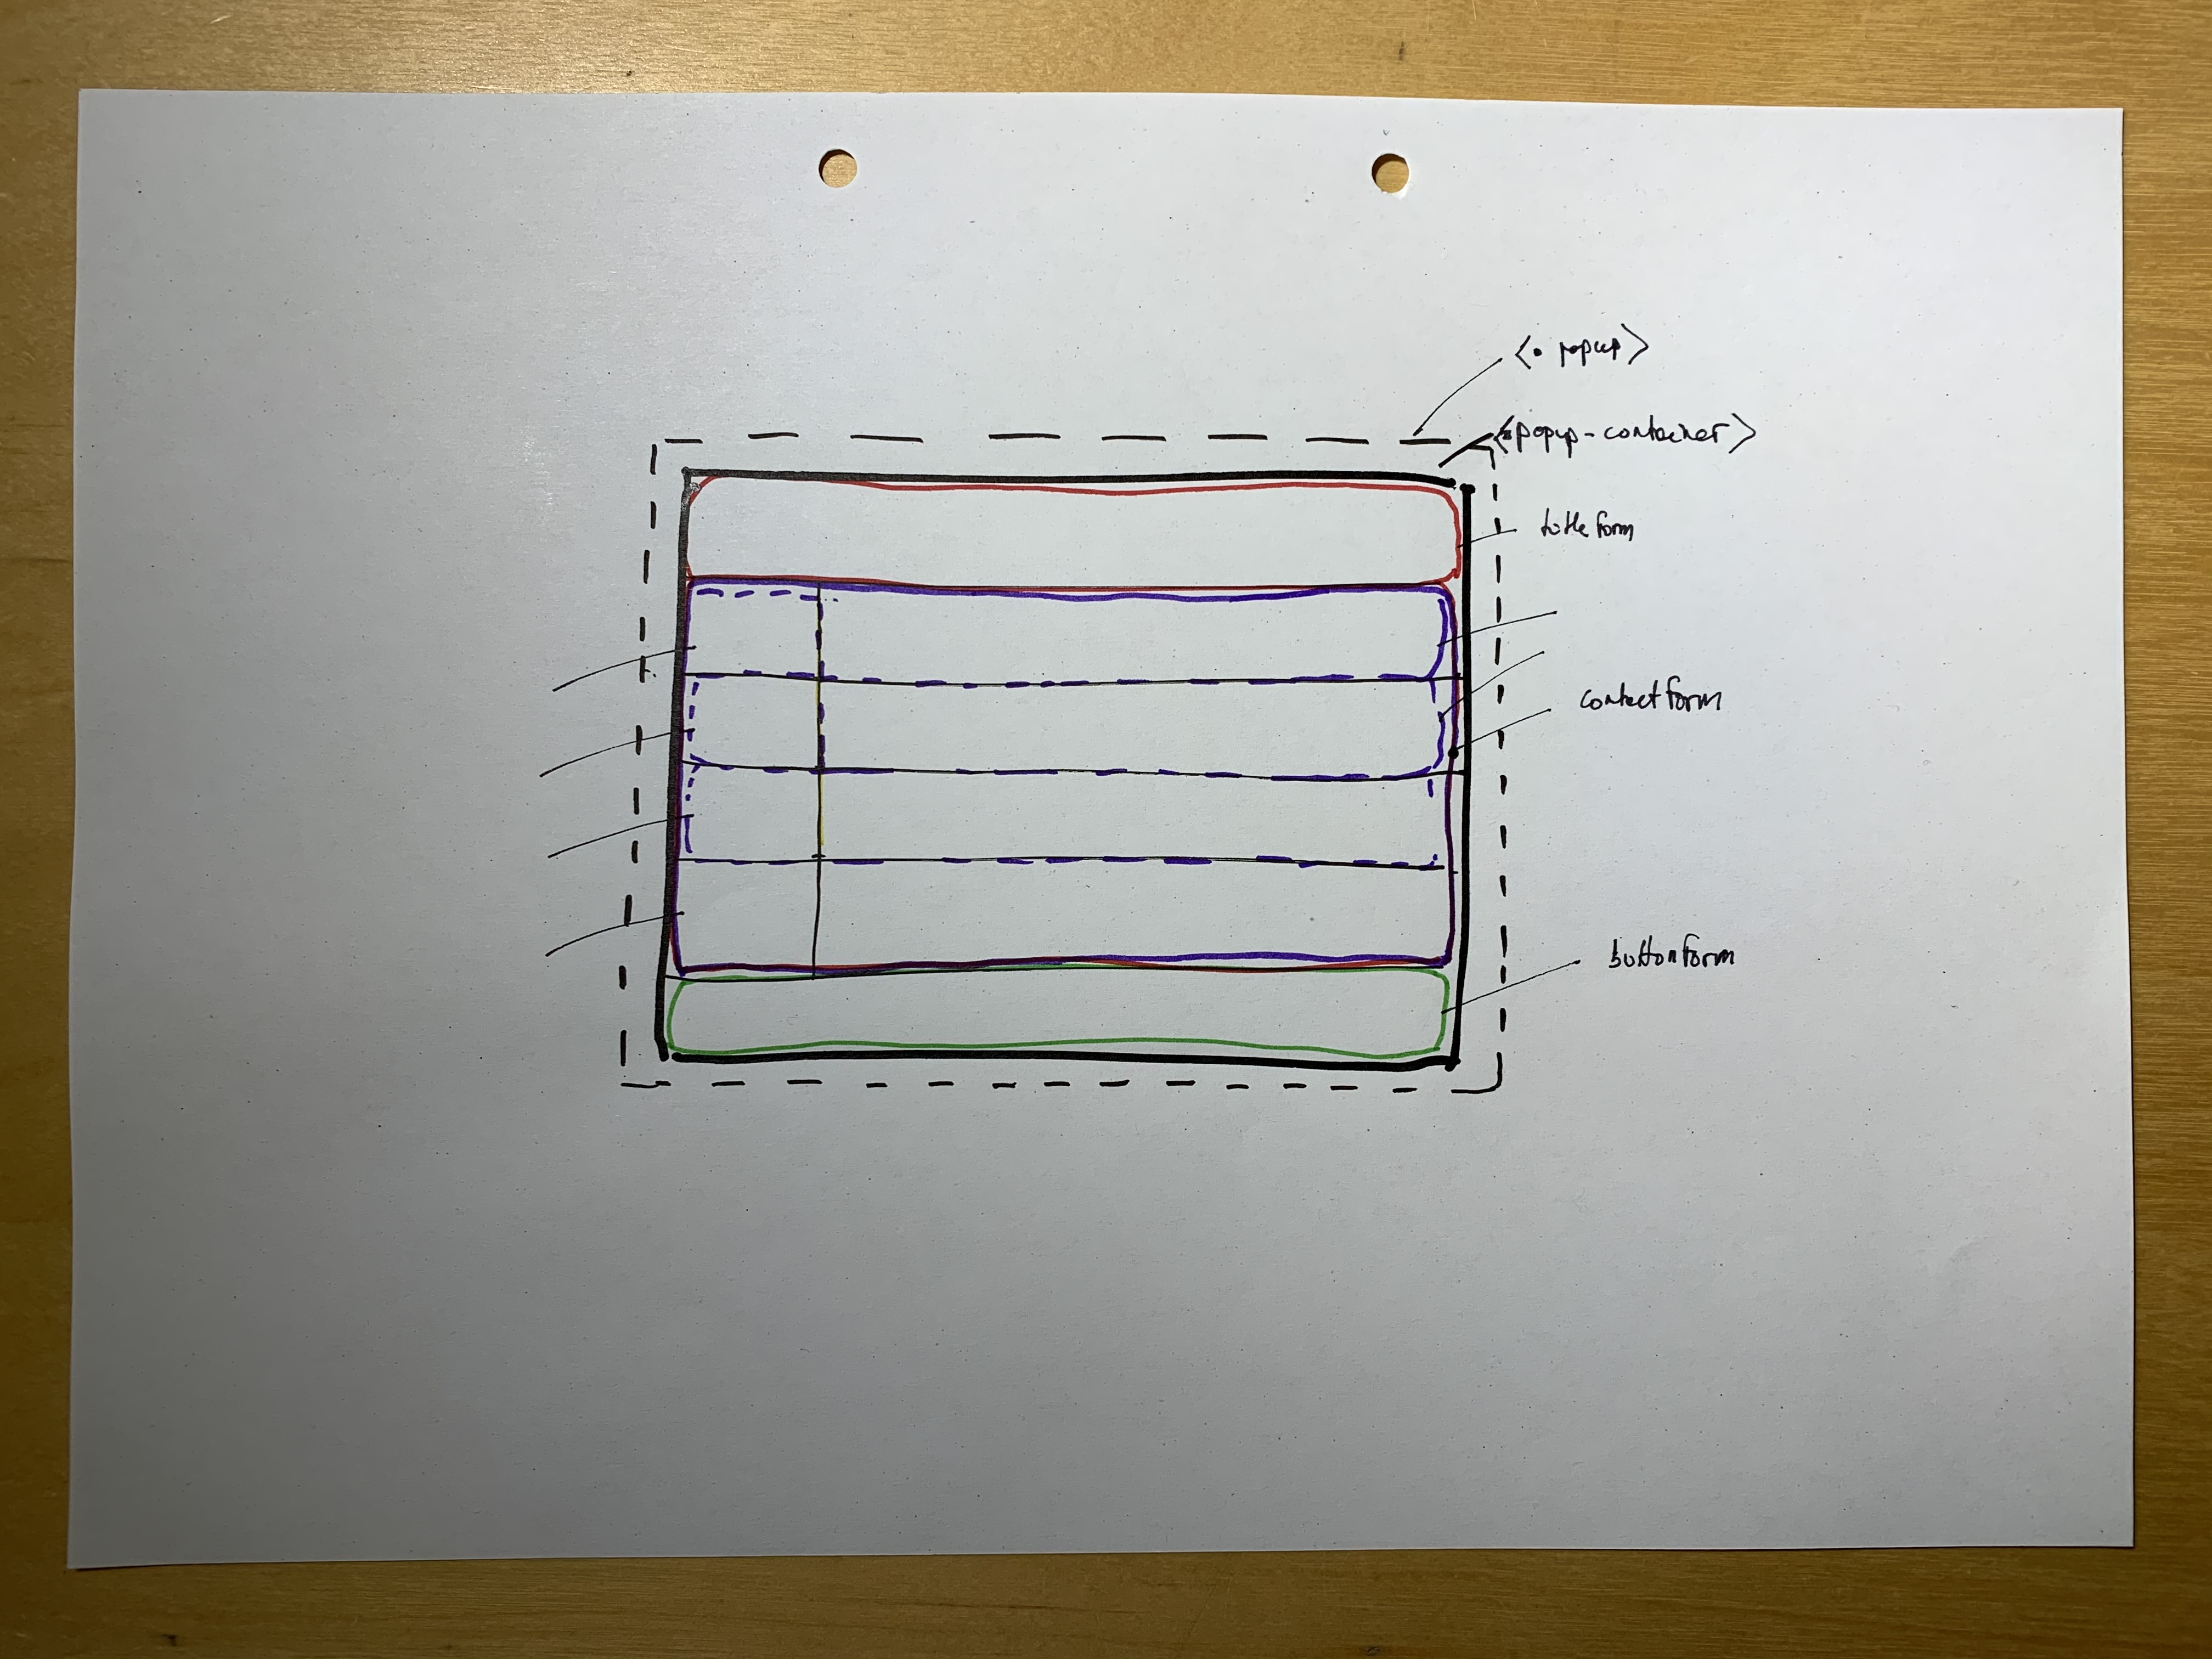 <• popup>
<popup-container>
title form
contact form
button form